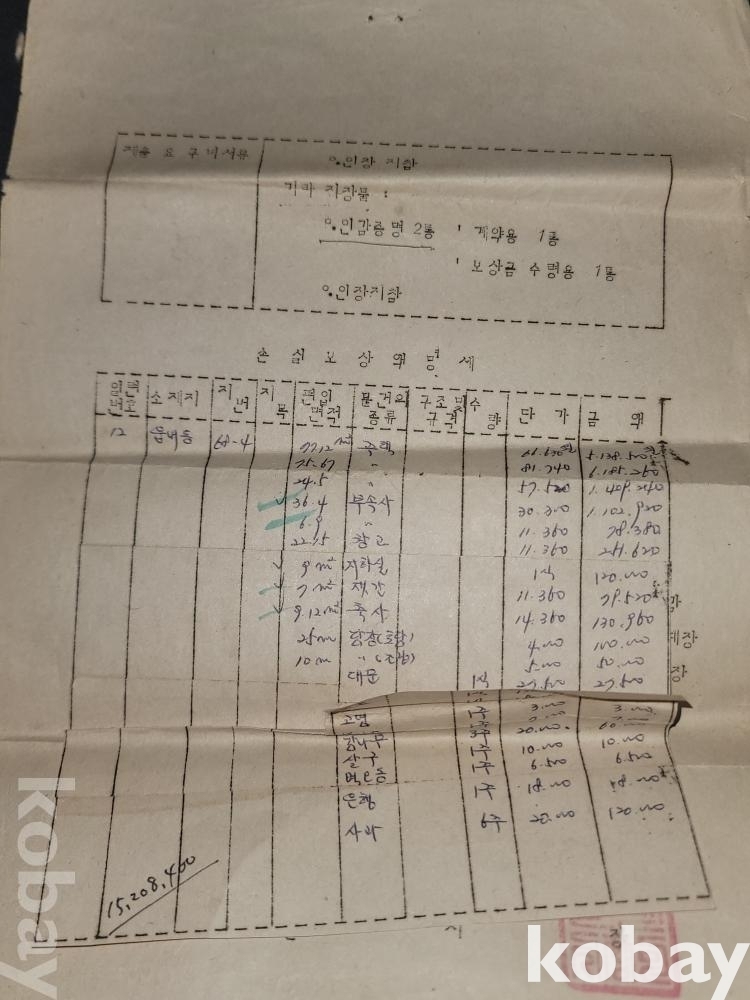 제출 요 구 비 서류
○.인장 지참
기타 지장물 :
○.인감증명 2통 ' 계약용 1통
' 보상금 수령용 1통
○.인장지참
손 실 보 상 액 명 세
일련번호 소재지 지번 지목 편입면적 물건의종류 구조및규격 수량 단 가 금 액
12 읍내동 68-4 77.12 m² 주택 5.138.500
75.67 〃 81.740 6.185.260
24.5 〃 57.520 1.409.240
✓ 36.4 부속사 30.300 1.102.920
6.9 〃 11.360 78.380
22.15 창고 11.360 251.620
✓ 9 m² 지하실 1식 120.000
✓ 7 m² 잿간 11.360 79.520
✓ 9.12 m² 축사 14.360 130.960
25m 담장(토담) 4.000 100.000
10m 〃 5.000 50.000
대문 1식 27.500 27.500
고염 1주 3.000 3.000
감나무 20.000 60.000
살구 1주 10.000 10.000
벽오동 1주 6.500 6.500
은행 1주 18.000 18.000
사과 6주 20.000 120.000
15,208,400
장
장
kobay
kobay